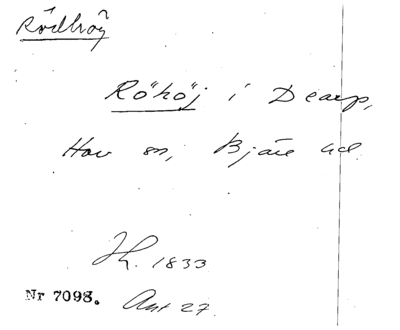 Rödhög
Röhöj i Dearp,
Hov sn, Bjäre hd
1833
Nr 7098. Ant 27.